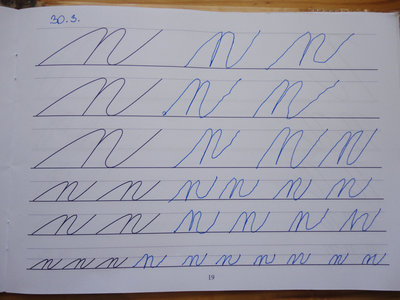 30.3.
n n n
n n n
n n n n
n n n n n n
n n n n n n
n n n n n n n n n n
19